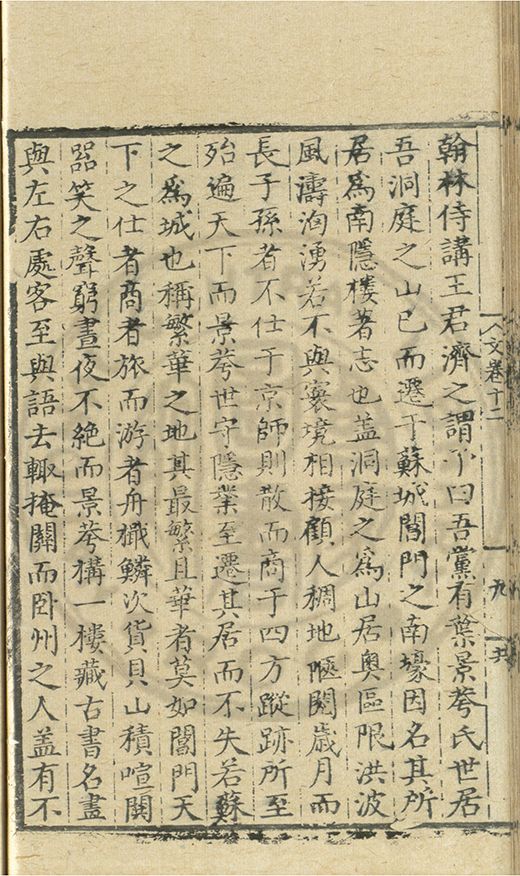 文卷十二
九
翰林侍講王君濟之謂予曰吾黨有葉景荂氏世居
吾洞庭之山已而遷于蘇城閶門之南壕因名其所
居爲南隱樓著志也盖洞庭之爲山居奧區限洪波
風濤洶湧若不與寰境相接顧人稠地陿閱歲月而
長子孫者不仕于京師則散而商于四方蹤跡所至
殆遍天下而景荂世守隱業至遷其居而不失若蘇
之爲城也稱繁華之地其最繁且華者莫如閶門天
下之仕者商者旅而游者舟檝鱗次貨貝山積喧鬨
嚻笑之聲窮晝夜不絕而景荂構一樓藏古書名畫
與左右處客至與語去輙掩關而卧州之人盖有不